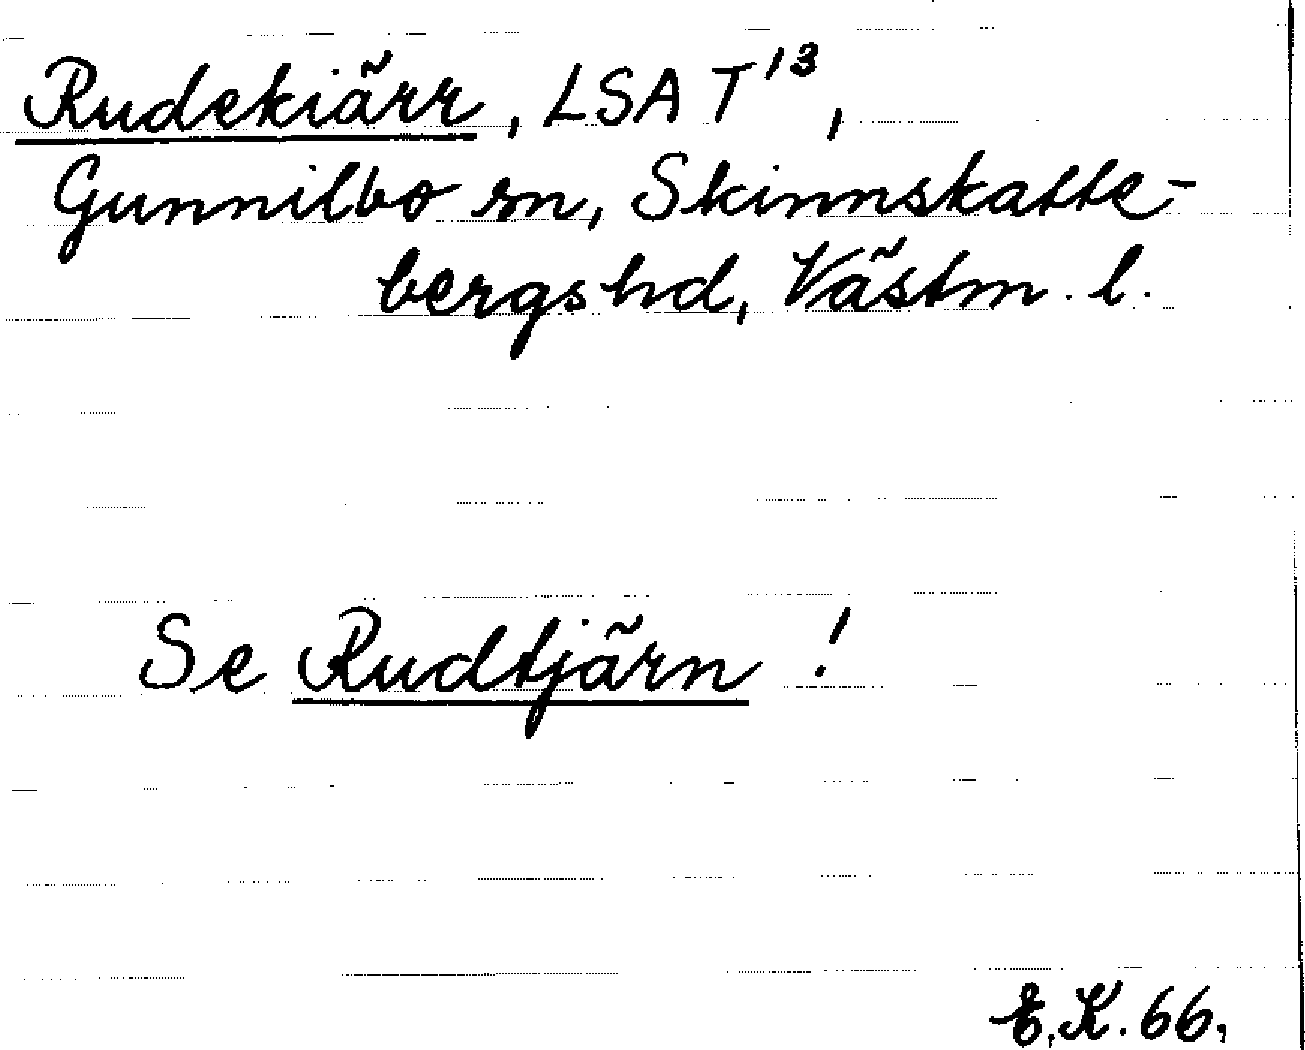 Rudekiärr, LSA T¹³,
Gunnilbo sn, Skinnskatte-
bergs hd, Västm. l.
Se Rudtjärn !
E.K. 66.